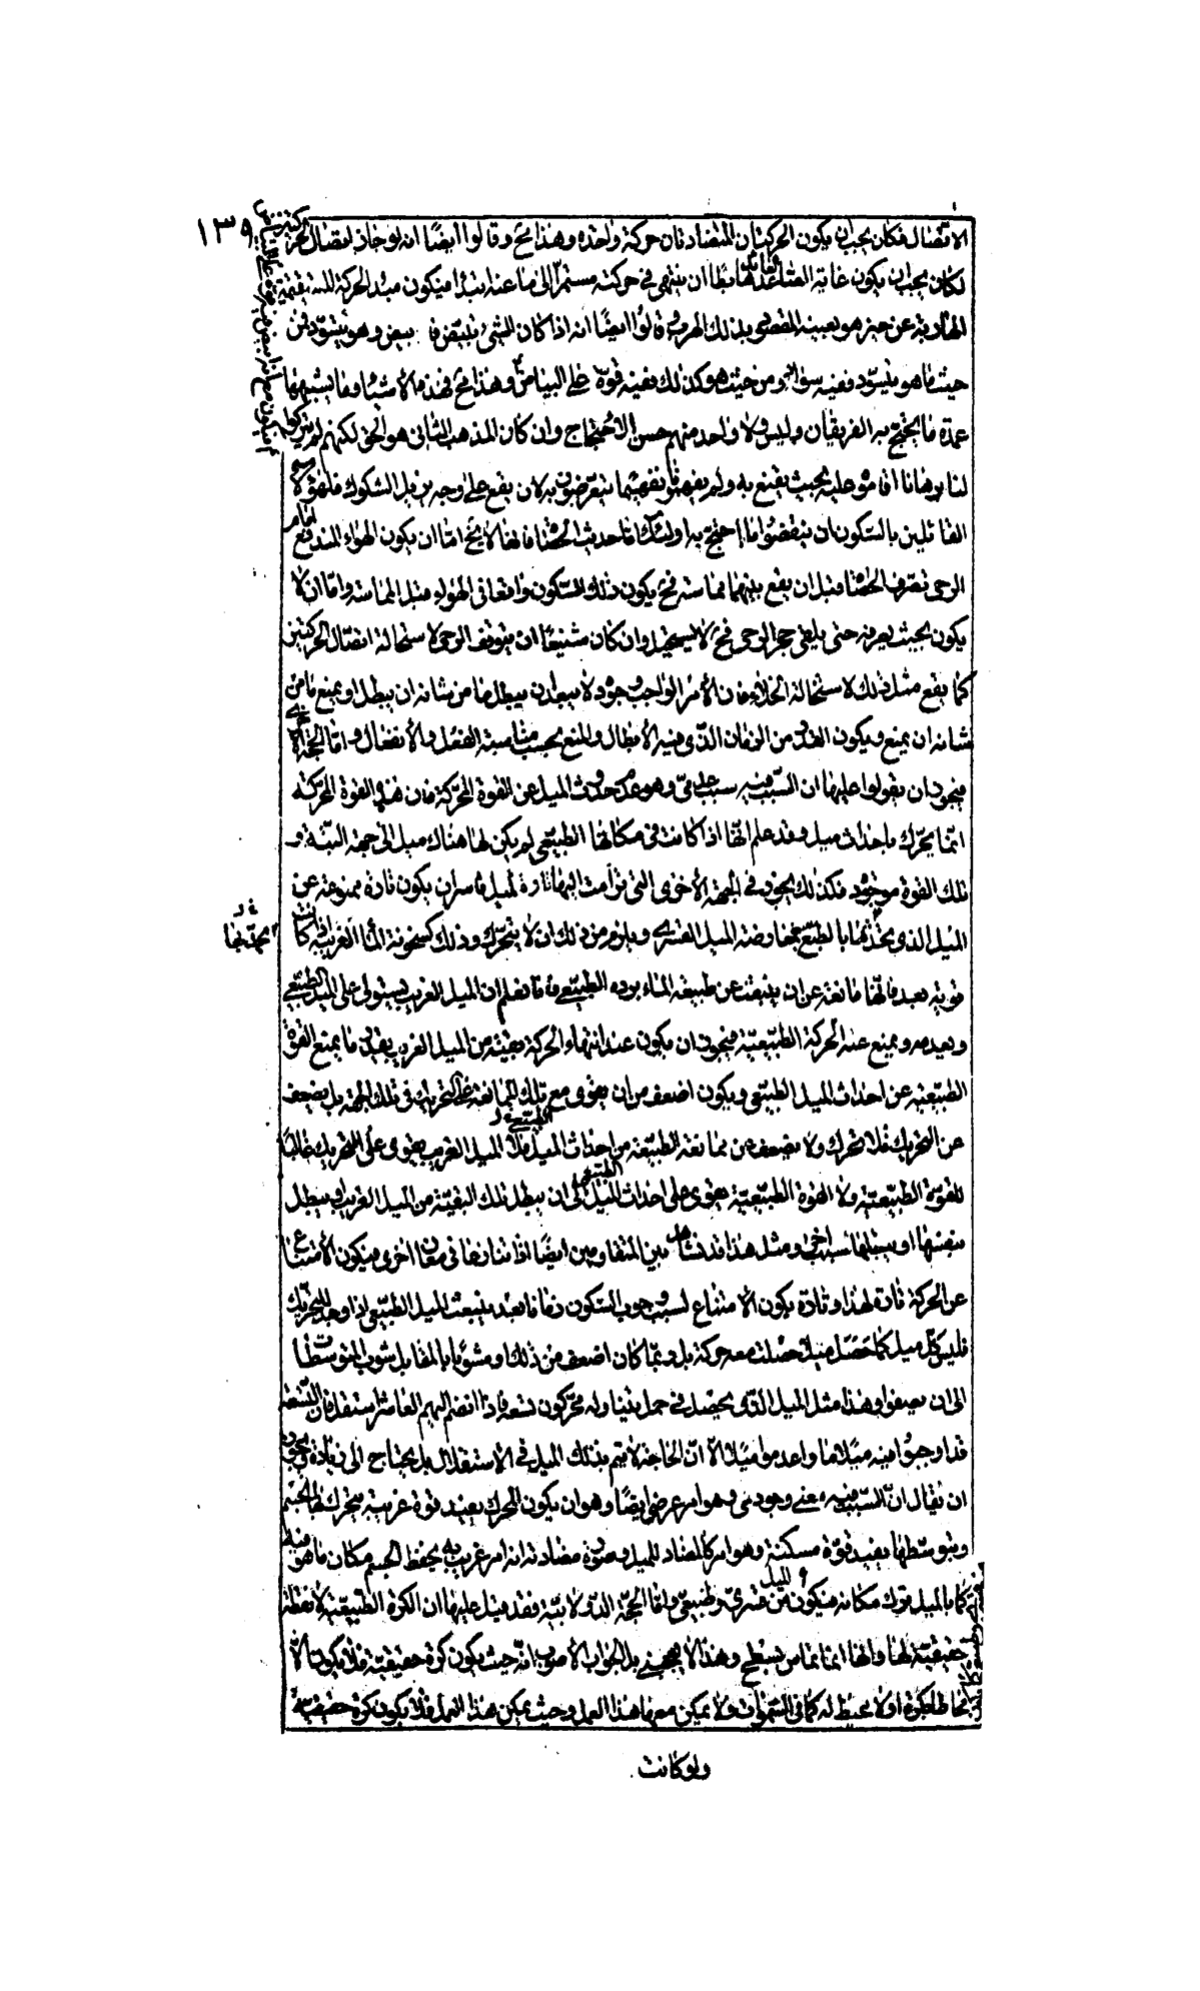 ١٣٩
الاتصال فكان يجب ان يكون الحركتان المتضادتان حركة واحدة وهذا مح وقالوا ايضًا انه لو جاز اتصال الحركتين
لكان يجب ان يكون غاية الصاعد هابطًا ان ينتهى فى حركته مستمرّا الى ما عنه ابتدأ فيكون مبدأ الحركة المستقيمة
الهاربة عن حيز هو بعينه المقصود بذلك الهرب وقالوا ايضًا انه اذا كان الشئ يبيض وهو يتسود فمن
حيث ما هو يتسود ففيه سواد ومن حيث هو كذلك ففيه قوة على البياض وهذا مح فهذه الأشياء وما يشبهها
عمدة ما يحتج به الفريقان وليس ولا واحد منهم حسن الاحتجاج وان كان المذهب الثانى هو الحق لكنهم لم يتركوا
لنا برهانا اقاموه عليه بحيث يقنع به ولم يفهموا تفهيما يتعرضون به لان يقع على وجه يزيل الشكوك فلهؤلاء
القائلين بالسكون ان ينقضوا ما احتج به اولئك اما حديث الحصاة فانها لا يخ اما ان يكون الهواء المندفع امام
الرحى تصرف الحصاة قبل ان يقع بينهما مماسة فح يكون ذلك السكون واقعا فى الهواء قبل المماسة واما ان لا
يكون بحيث يصرفه حتى يلقى حجر الرحى فح لا يستحيل وان كان مشنيعًا ان يتوقف الرحى لاستحالة اتصال الحركتين
كما يقع مثل ذلك لاستحالة الخلاء فان الأمر الواجب وجوده لا يبعد ان يبطل ما من شانه ان يبطل او يمنع ما من
شانه ان يمنع ويكون القدر من الزمان الذى فيه الأبطال والمنع بحسب مناسبة الفعل والأنفعال واما الحجة
فيجوز ان يقولوا عليها ان السبب فيه سبب عدمى وهو عدم حدوث الميل عن القوة المحركة فان هذه القوة المحركة
انما يحرك باحداث ميل وقد علم انها اذا كانت فى مكانها الطبيعى لم يكن لها هناك ميل الى جهة البتة و
تلك القوة موجوده فكذلك يجوز فى الجهة الأخرى التى تراءت اليها تارة لميل قاسر ان يكون تارة ممنوعة عن
الميل الذى يحدثها بالطبع بمعاوضة الميل القسرى ويلزم من ذلك ان لا يتحرك وذلك كسخونة الماء الغريبة اذا كانت
قوية بعد فانها مانعة عن ان ينبعث عن طبيعة الماء برده الطبيعى فاما نعلم ان الميل الغريب يستولى على الميل الطبيعى
ويعدمه ويمنع عنه الحركة الطبيعية فيجوز ان يكون عند انتهاء الحركة بقية من الميل الغريب يقدر ما يمنع القوة
الطبيعية عن احداث الميل الطبيعى ويكون اضعف من ان يقوى مع تلك الممانعة على التحريك فى تلك الجهة بل يضعف
عن التحريك فلا تحرك ولا يضعف عن ممانعة الطبيعة من احداث الميل الطبيعى فلا الميل الغريب يقوى على التحريك غالبًا
للقوة الطبيعية ولا القوة الطبيعية يقوى على احداث الميل الطبيعى الى ان يبطل تلك البقية من الميل الغريب او يبطل
بنفسها او يبطلها سبب اخر ومثل هذا قد نشاهد بين المتقاومين ايضًا اذا تنازعا فى معان اخرى فيكون الأمتناع
عن الحركة تارة لهذا وتارة يكون الأمتناع لسبب وجوب السكون زمانا بعد ينبعث الميل الطبيعى اذا وجد للتحريك
فليس كل ميل كما حصل ميلا حصلت معه حركة بل ربما كان اضعف من ذلك او مشوبا بالمقابل شوب المتوسطات
الى ان يصفو او هذا مثل الميل الذى يحصل فى حمل يتناوله محركون تسعة فاذا انضم اليهم العاشر استقل فان التسعة
قد اوجبوا فيه ميلا ما واعدموا ميلا الا ان الحاجة لا يتم بذلك الميل فى الأستقلال بل يحتاج الى زيادة ويجوز
ان يقال ان السبب فيه معنى وجودى وهو امر عرضى ايضًا وهو ان يكون المحرك يفيد قوة غريبة يتحرك بها الجسم
وبتوسطها يفيد قوة مسكنة وهو امر كالمضاد للميل وصورة مضادته انه امر غريب به يحفظ الجسم مكان ما هو فيه
كما بالميل يترك مكانه فيكون من الميل قسرى وطبيعى واما الحجة الثالثة فقد قيل عليها ان الكرة الطبيعية لا نقطة
حقيقية لها وانها انما تماس بسطح وهذا لا يعجبنى بل الجواب الأصوب انه حيث يكون كرة حقيقية فلا يكون الا
محاطا بكرة او لا محيط له كما فى السموات ولا يمكن معها هذا العمل وحيث يمكن هذا العمل فلا يكون كرة حقيقية
ولو كانت